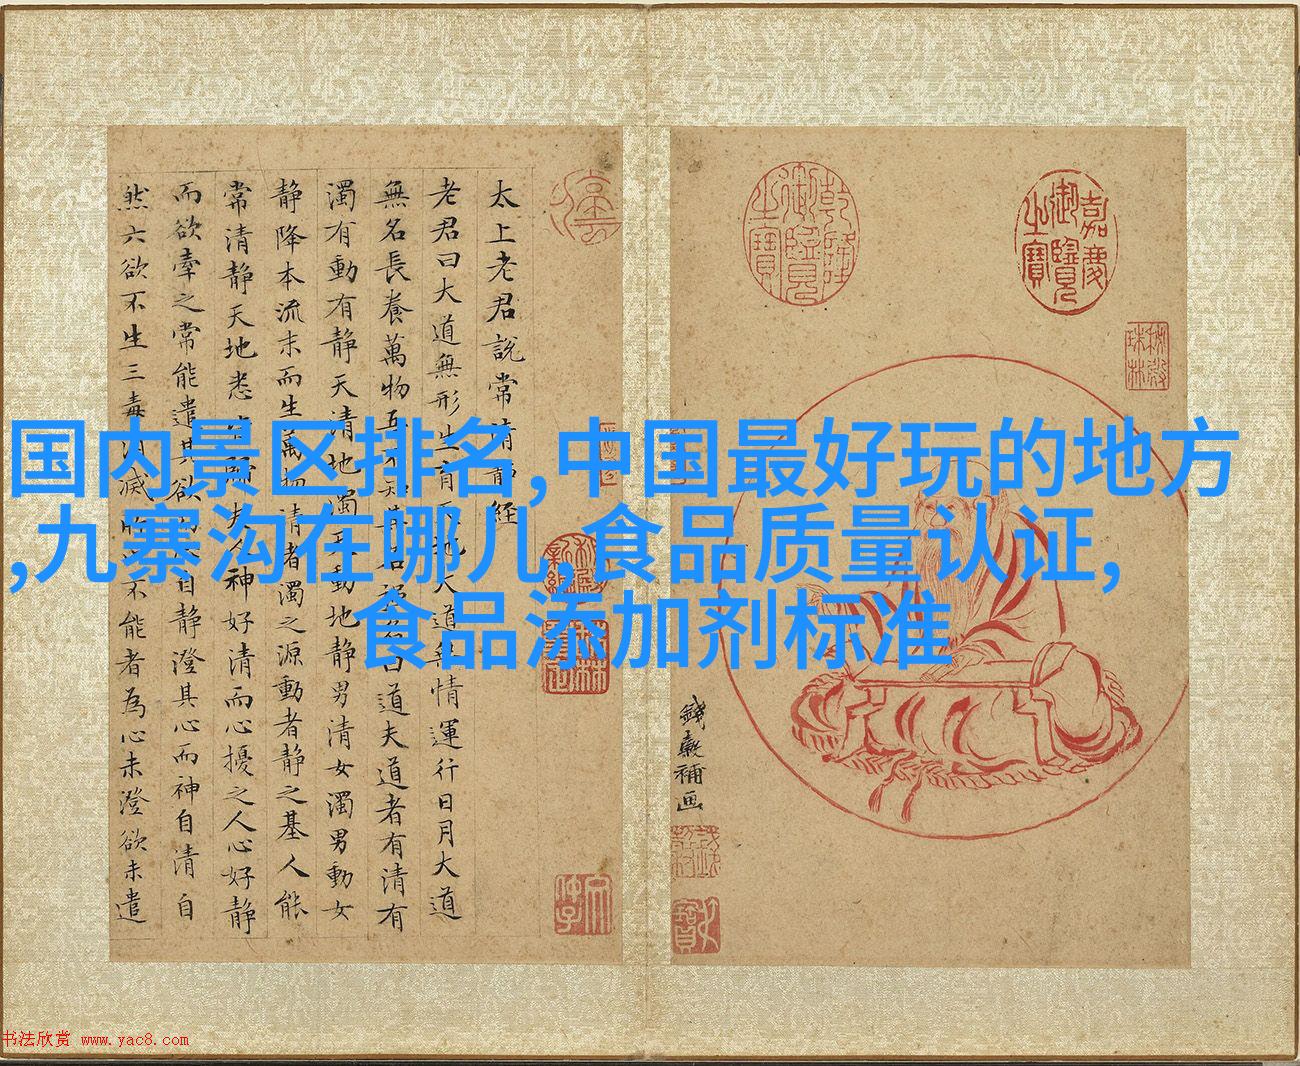 太上老君說常清靜經
老君曰大道無形生育天地大道無情運行日月大道
無名長養萬物吾不知其名強名曰道夫道者有清有
濁有動有静天清地濁天動地静男清女濁男動女
静降本流末而生萬物清者濁之源動者静之基人能
常清静天地悉皆歸夫人神好清而心擾之人心好静
而欲牽之常能遣其欲而心自静澄其心而神自清自
然六欲不生三毒消滅所以不能者為心未澄欲未遣
嘉慶御覽之寶
乾隆御覽之寶
秘殿珠林
錢穀補画
国内景区排名,中国最好玩的地方
,九寨沟在哪儿,食品质量认证,
食品添加剂标准
书法欣赏 www.yac8.com